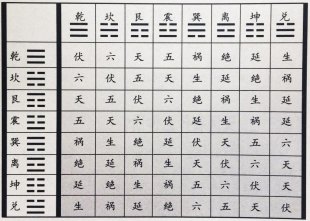 乾 坎 艮 震 巽 离 坤 兑
乾 伏 六 天 五 祸 绝 延 生
坎 六 伏 五 天 生 延 绝 祸
艮 天 五 伏 六 绝 祸 生 延
震 五 天 六 伏 延 生 祸 绝
巽 祸 生 绝 延 伏 天 五 六
离 绝 延 祸 生 天 伏 六
坤 延 绝 生 祸 五 六 伏 天
兑 生 祸 延 绝 六 五 天 伏